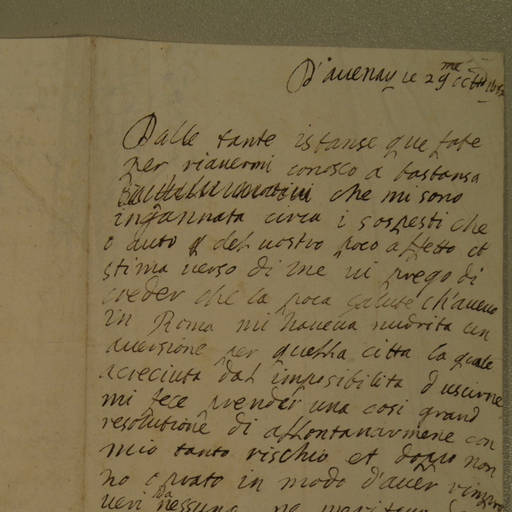 D'auenay le 29me octb
Dalle tante istanse que fate
per riauermi conosco a bastansa
che mi sono
ingannata circa i sospesti che
o auto del uostro poco affetto et
stima uerso di me ui prego di
creder che la poca salute ch'aueuo
in Roma mi haueua nudrita un
auersione per quella citta la quale
acreciuta dal imposibilita d'uscirne
mi fece prender una cosi grand
resolutione di allontanarmene con
mio tanto rischio et dopo non
ho oprato in modo d'auer rimpro
ueri da nessuno ne